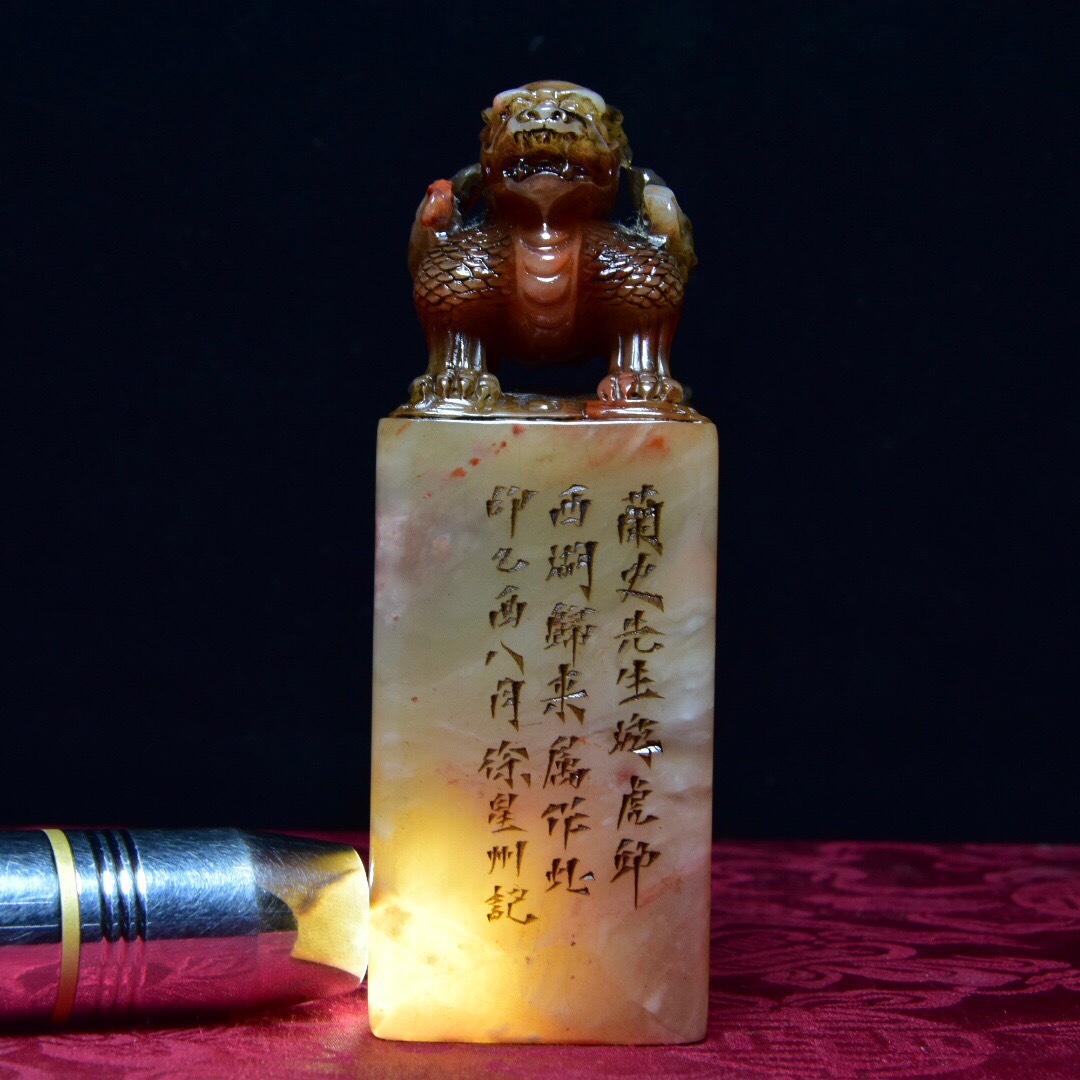 蘭史先生游虎邱
西湖歸来属作此
印乙酉八月徐星州記